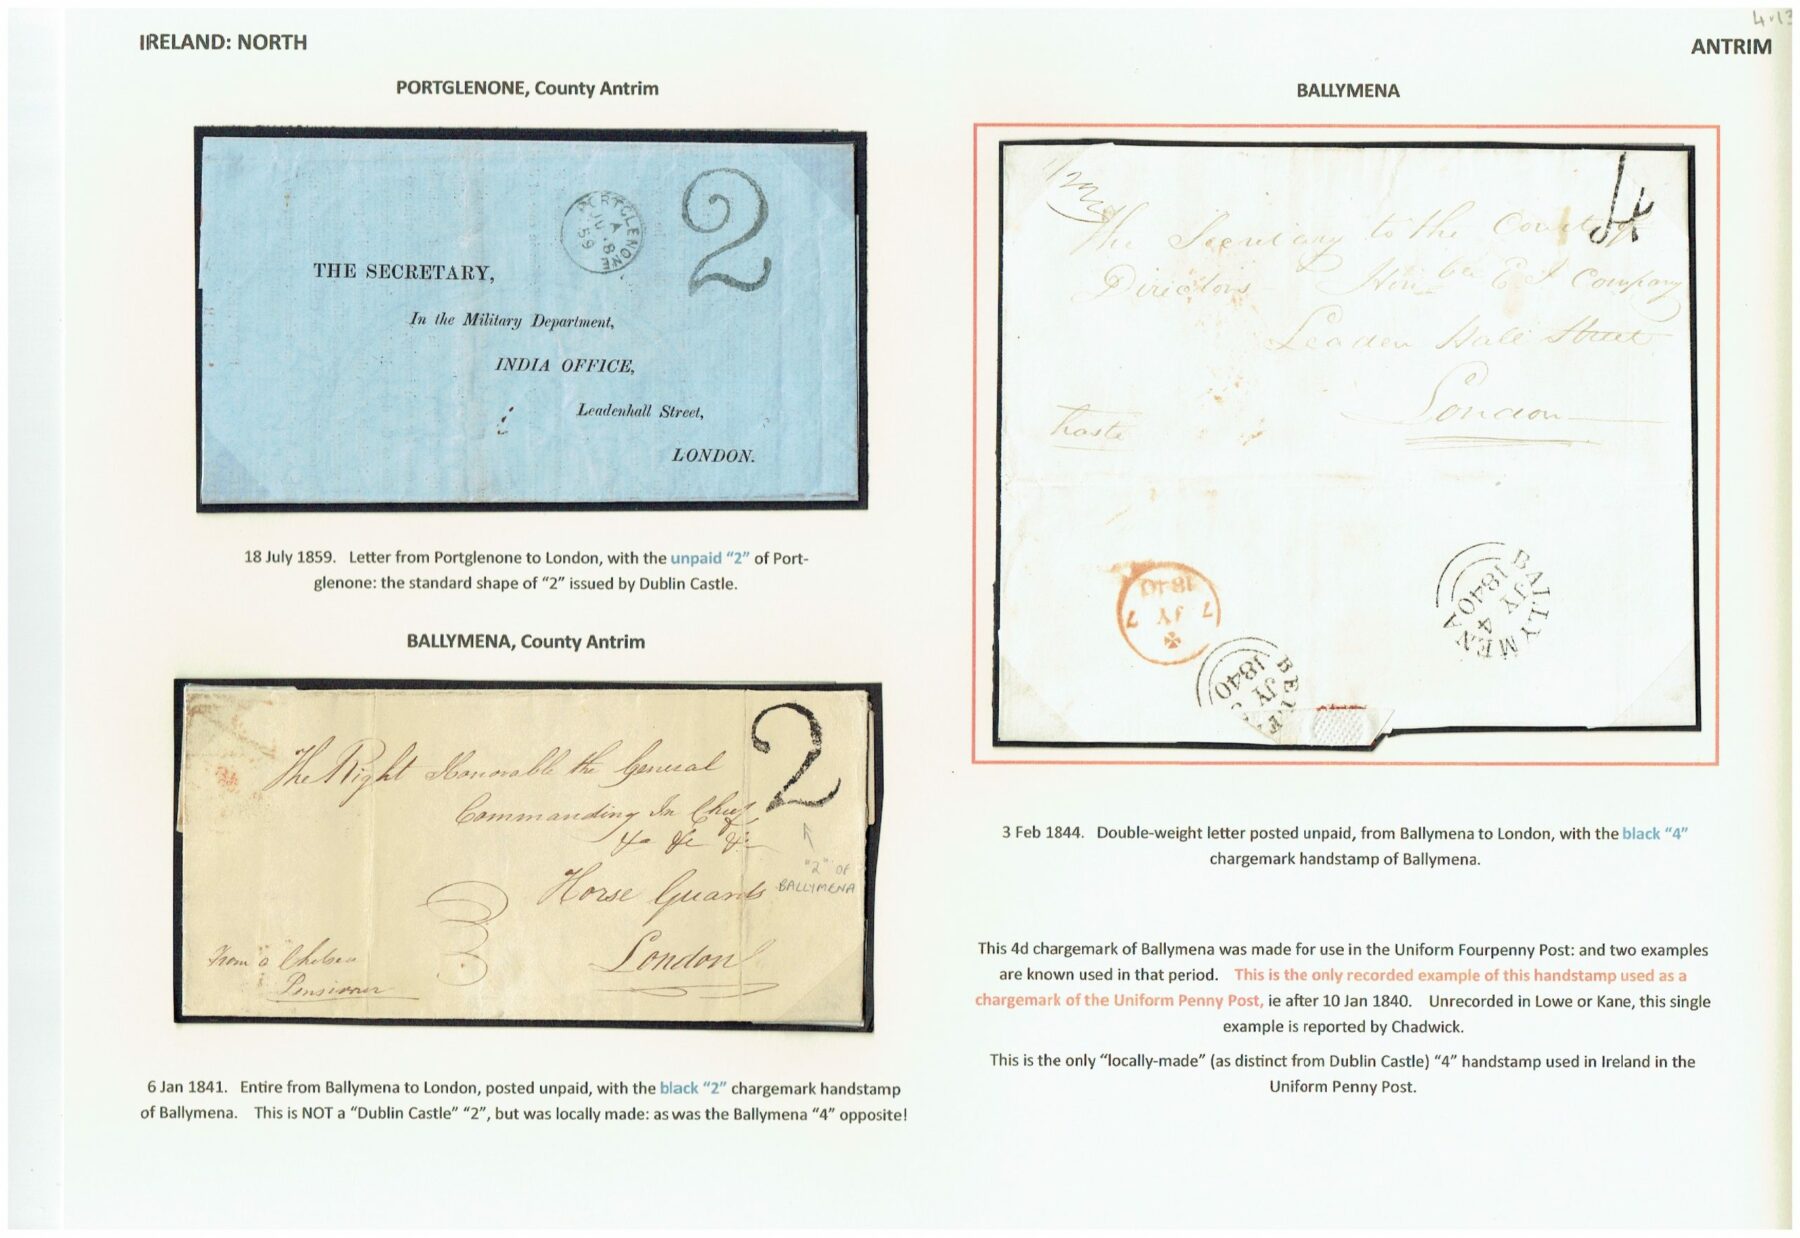 4.13
IRELAND: NORTH
ANTRIM
PORTGLENONE, County Antrim
PORTGLENONE
A
JU 18
59
2
THE SECRETARY,
In the Military Department,
INDIA OFFICE,
Leadenhall Street,
LONDON.
18 July 1859. Letter from Portglenone to London, with the unpaid “2” of Port-
glenone: the standard shape of “2” issued by Dublin Castle.
BALLYMENA, County Antrim
2
The Right Honorable the General
Commanding In Chief
&c &c &c
Horse Guards
London
From a Chelsea
Pensioner
"2" OF
BALLYMENA
6 Jan 1841. Entire from Ballymena to London, posted unpaid, with the black “2” chargemark handstamp
of Ballymena. This is NOT a “Dublin Castle” “2”, but was locally made: as was the Ballymena “4” opposite!
BALLYMENA
4
The Secretary to the Court of
Directors Honble E I Company
Leaden Hall Street
London
haste
7 JY 7
1840
BALLYMENA
JY 4
1840
BELF
JY
1840
3 Feb 1844. Double-weight letter posted unpaid, from Ballymena to London, with the black “4”
chargemark handstamp of Ballymena.
This 4d chargemark of Ballymena was made for use in the Uniform Fourpenny Post: and two examples
are known used in that period. This is the only recorded example of this handstamp used as a
chargemark of the Uniform Penny Post, ie after 10 Jan 1840. Unrecorded in Lowe or Kane, this single
example is reported by Chadwick.
This is the only “locally-made” (as distinct from Dublin Castle) “4” handstamp used in Ireland in the
Uniform Penny Post.